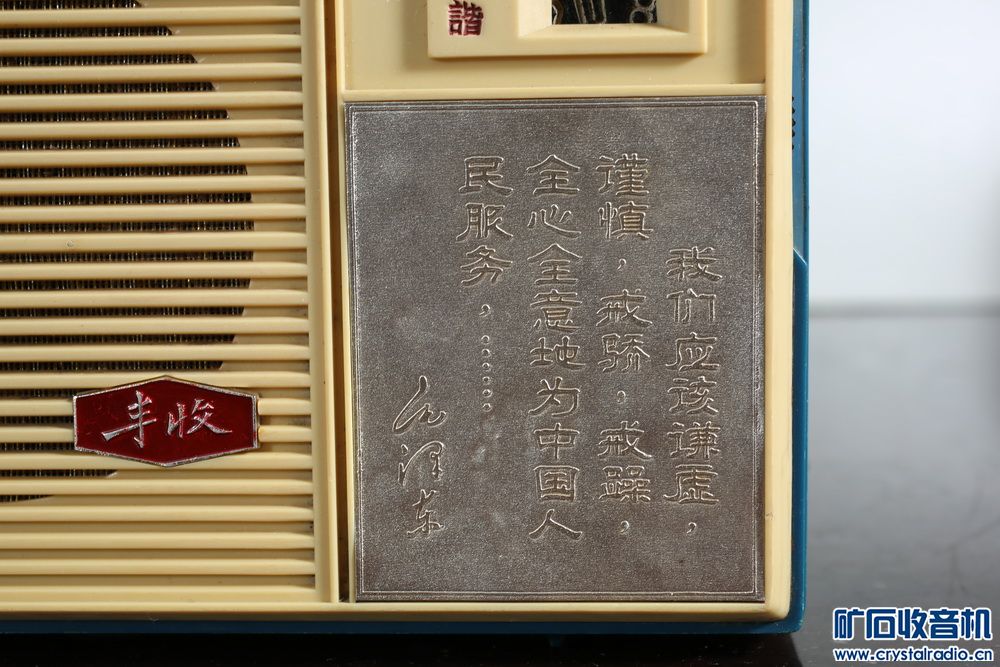 諧
我们应该谦虚，
谨慎，戒骄，戒躁，
全心全意地为中国人
民服务，……
毛泽东
丰收
矿石收音机
www.crystalradio.cn